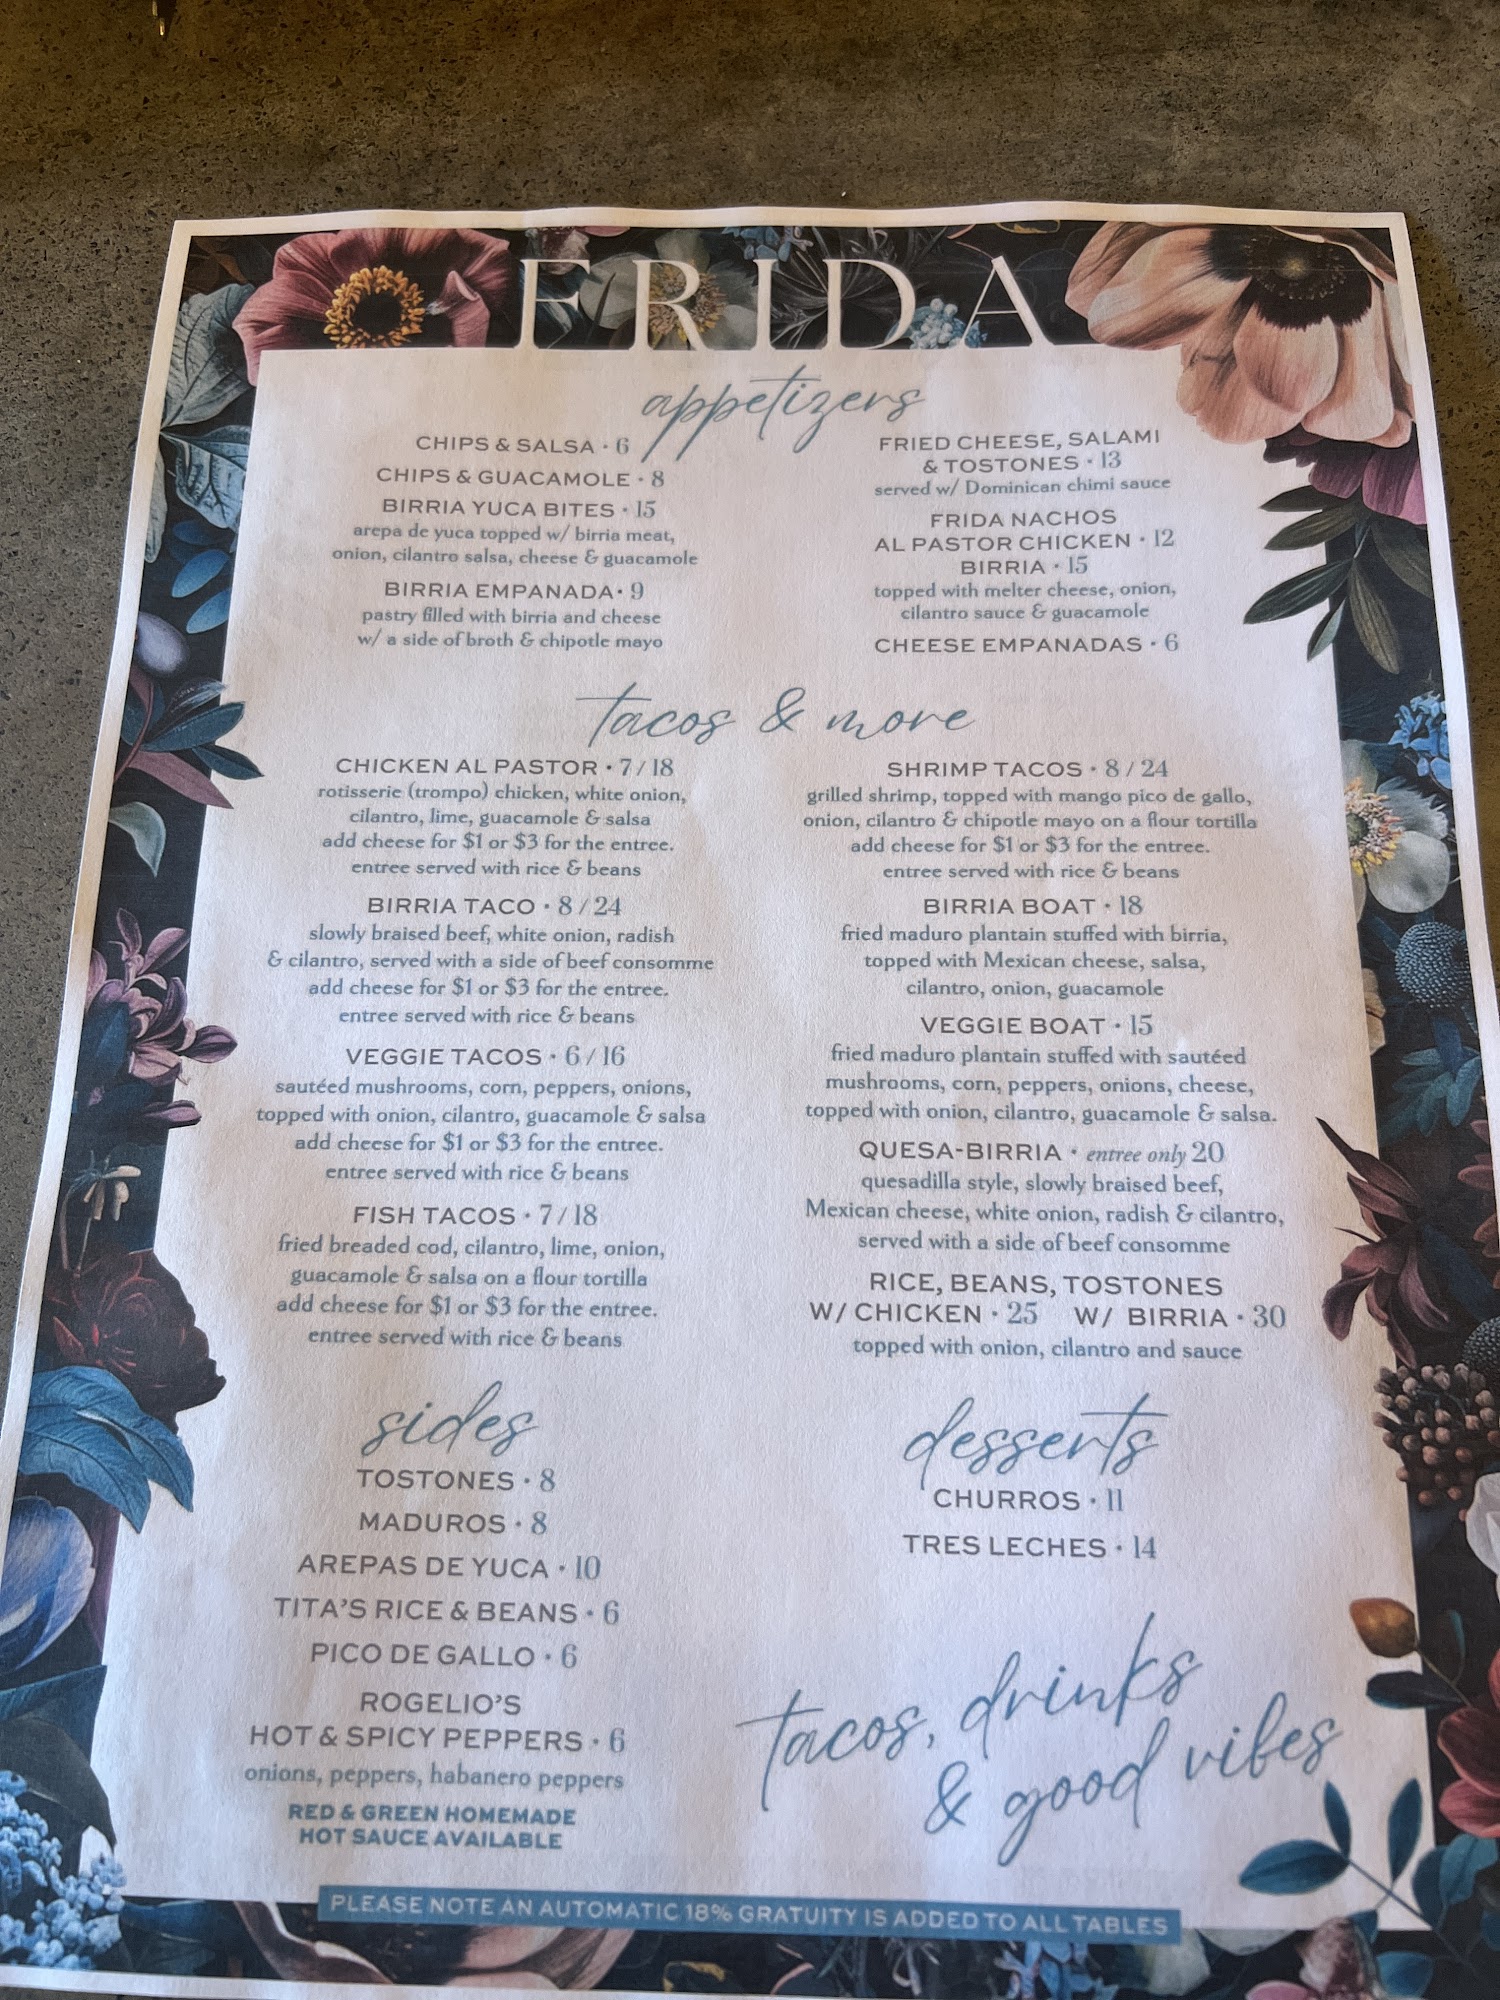 FRIDA
appetizers
CHIPS & SALSA • 6
CHIPS & GUACAMOLE • 8
BIRRIA YUCA BITES • 15
arepa de yuca topped w/ birria meat,
onion, cilantro salsa, cheese & guacamole
BIRRIA EMPANADA • 9
pastry filled with birria and cheese
w/ a side of broth & chipotle mayo
FRIED CHEESE, SALAMI
& TOSTONES • 13
served w/ Dominican chimi sauce
FRIDA NACHOS
AL PASTOR CHICKEN • 12
BIRRIA • 15
topped with melter cheese, onion,
cilantro sauce & guacamole
CHEESE EMPANADAS • 6
tacos & more
CHICKEN AL PASTOR • 7 / 18
rotisserie (trompo) chicken, white onion,
cilantro, lime, guacamole & salsa
add cheese for $1 or $3 for the entree.
entree served with rice & beans
BIRRIA TACO • 8 / 24
slowly braised beef, white onion, radish
& cilantro, served with a side of beef consomme
add cheese for $1 or $3 for the entree.
entree served with rice & beans
VEGGIE TACOS • 6 / 16
sautéed mushrooms, corn, peppers, onions,
topped with onion, cilantro, guacamole & salsa
add cheese for $1 or $3 for the entree.
entree served with rice & beans
FISH TACOS • 7 / 18
fried breaded cod, cilantro, lime, onion,
guacamole & salsa on a flour tortilla
add cheese for $1 or $3 for the entree.
entree served with rice & beans
SHRIMP TACOS • 8 / 24
grilled shrimp, topped with mango pico de gallo,
onion, cilantro & chipotle mayo on a flour tortilla
add cheese for $1 or $3 for the entree.
entree served with rice & beans
BIRRIA BOAT • 18
fried maduro plantain stuffed with birria,
topped with Mexican cheese, salsa,
cilantro, onion, guacamole
VEGGIE BOAT • 15
fried maduro plantain stuffed with sautéed
mushrooms, corn, peppers, onions, cheese,
topped with onion, cilantro, guacamole & salsa.
QUESA-BIRRIA • entree only 20
quesadilla style, slowly braised beef,
Mexican cheese, white onion, radish & cilantro,
served with a side of beef consomme
RICE, BEANS, TOSTONES
W/ CHICKEN • 25 W/ BIRRIA • 30
topped with onion, cilantro and sauce
sides
TOSTONES • 8
MADUROS • 8
AREPAS DE YUCA • 10
TITA'S RICE & BEANS • 6
PICO DE GALLO • 6
ROGELIO'S
HOT & SPICY PEPPERS • 6
onions, peppers, habanero peppers
RED & GREEN HOMEMADE
HOT SAUCE AVAILABLE
desserts
CHURROS • 11
TRES LECHES • 14
tacos, drinks
& good vibes
PLEASE NOTE AN AUTOMATIC 18% GRATUITY IS ADDED TO ALL TABLES